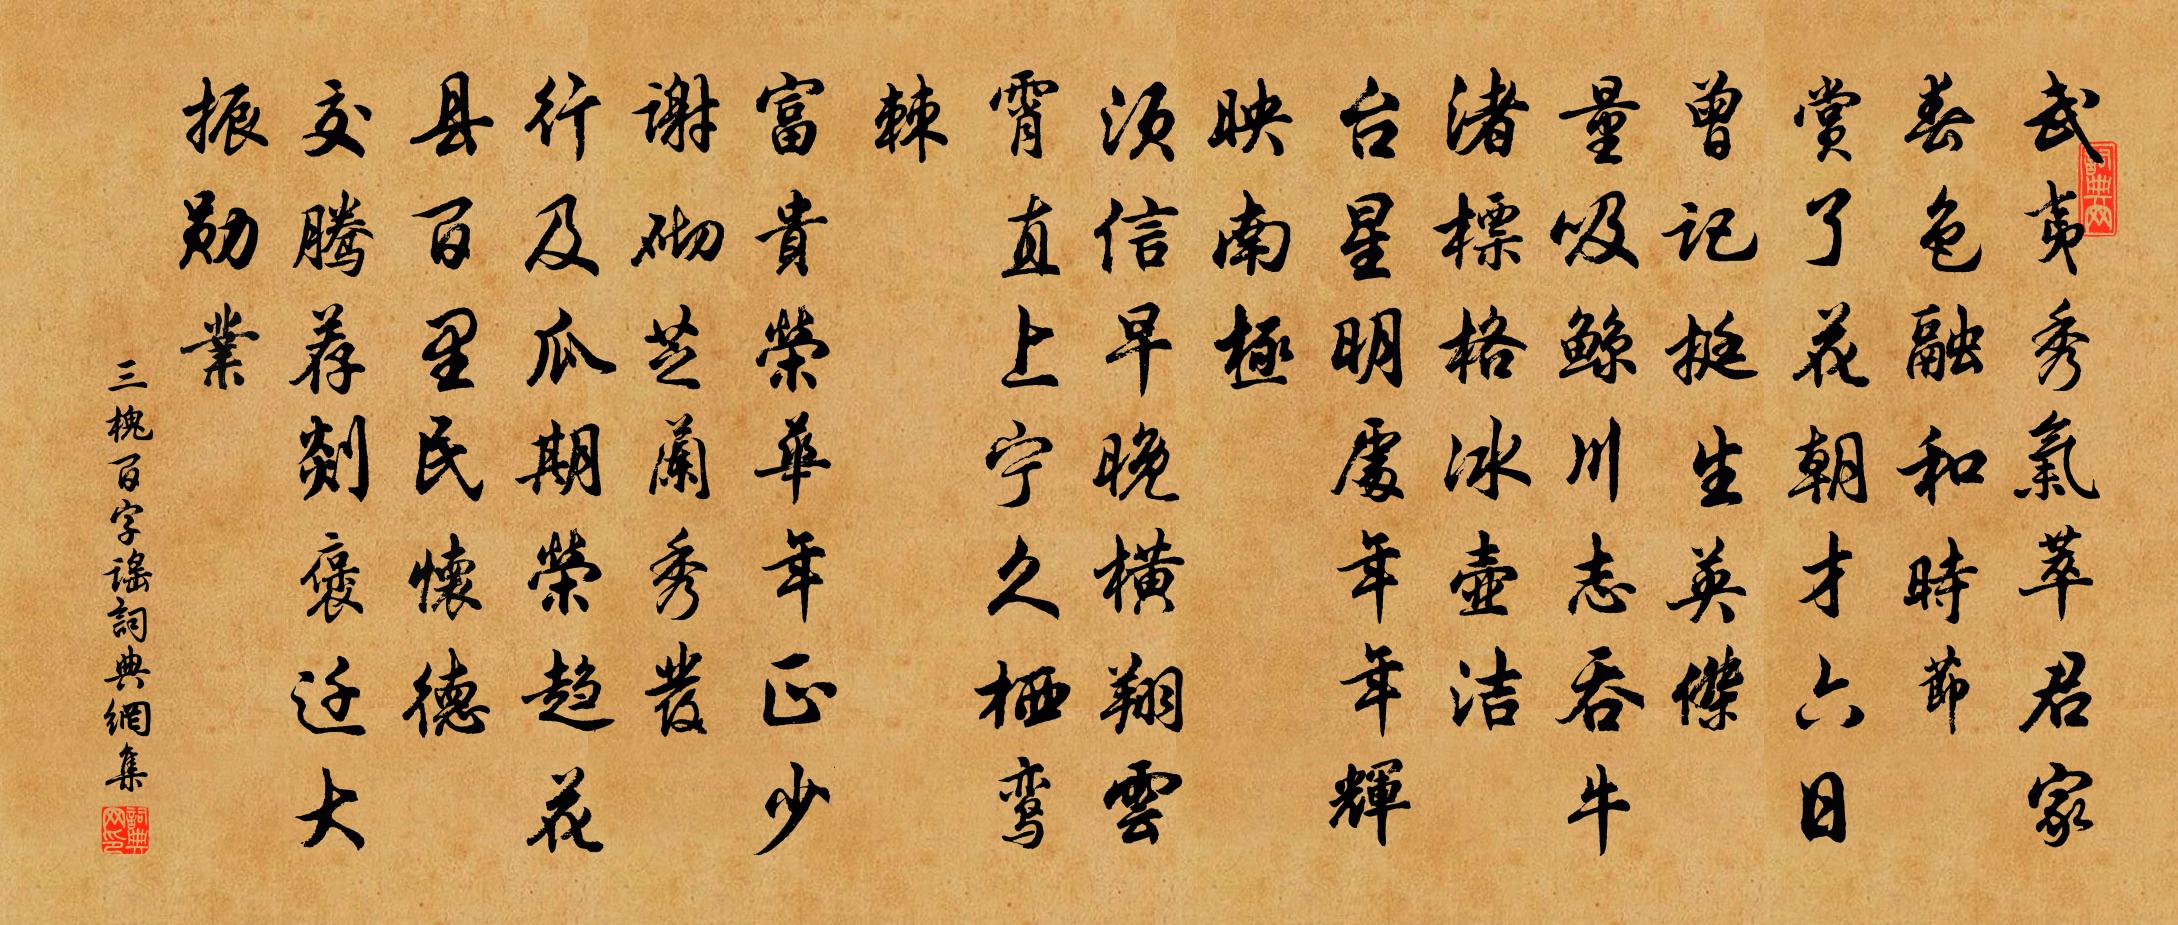 武夷秀氣萃君家
春色融和時節
賞了花朝才六日
曾记挺生英傑
量吸鲸川志吞牛
渚標格冰壺洁
台星明處年年輝
映南極
须信早晚横翔雲
霄直上宁久栖鸾
棘
富貴榮華年正少
谢砌芝蘭秀發
行及瓜期榮趋花
县百里民懷德
交腾荐剡褒迁大
振勋業
三槐百字謠詞典網集
詞典网
詞典网印